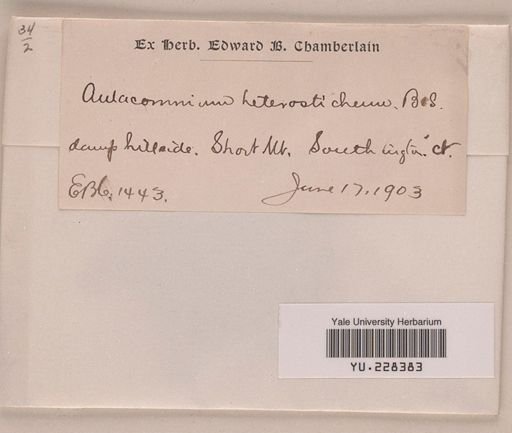 34
2
Ex Herb. Edward B. Chamberlain
Aulacomnium heterostichum. B&S.
damp hillside. Short Mt. Southington. Ct.
EBC. 1443.
June 17, 1903
Yale University Herbarium
YU.228383